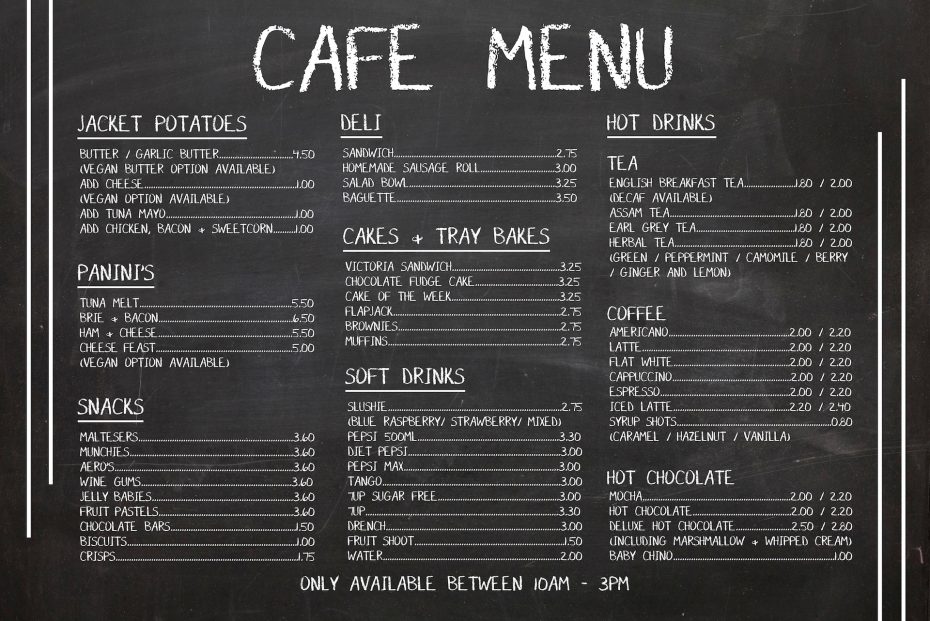 CAFE MENU
JACKET POTATOES
BUTTER / GARLIC BUTTER 4.50
(VEGAN BUTTER OPTION AVAILABLE)
ADD CHEESE 1.00
(VEGAN OPTION AVAILABLE)
ADD TUNA MAYO 1.00
ADD CHICKEN, BACON + SWEETCORN 1.00
PANINI'S
TUNA MELT 5.50
BRIE + BACON 6.50
HAM + CHEESE 5.50
CHEESE FEAST 5.00
(VEGAN OPTION AVAILABLE)
SNACKS
MALTESERS 3.60
MUNCHIES 3.60
AERO'S 3.60
WINE GUMS 3.60
JELLY BABIES 3.60
FRUIT PASTELS 3.60
CHOCOLATE BARS 1.50
BISCUITS 1.00
CRISPS 1.75
DELI
SANDWICH 2.75
HOMEMADE SAUSAGE ROLL 3.00
SALAD BOWL 3.25
BAGUETTE 3.50
CAKES + TRAY BAKES
VICTORIA SANDWICH 3.25
CHOCOLATE FUDGE CAKE 3.25
CAKE OF THE WEEK 3.25
FLAPJACK 2.75
BROWNIES 2.75
MUFFINS 2.75
SOFT DRINKS
SLUSHIE 2.75
(BLUE RASPBERRY/ STRAWBERRY/ MIXED)
PEPSI 500ML 3.30
DIET PEPSI 3.00
PEPSI MAX 3.00
TANGO 3.00
7UP SUGAR FREE 3.00
7UP 3.30
DRENCH 3.00
FRUIT SHOOT 1.50
WATER 2.00
HOT DRINKS
TEA
ENGLISH BREAKFAST TEA 1.80 / 2.00
(DECAF AVAILABLE)
ASSAM TEA 1.80 / 2.00
EARL GREY TEA 1.80 / 2.00
HERBAL TEA 1.80 / 2.00
(GREEN / PEPPERMINT / CAMOMILE / BERRY
/ GINGER AND LEMON)
COFFEE
AMERICANO 2.00 / 2.20
LATTE 2.00 / 2.20
FLAT WHITE 2.00 / 2.20
CAPPUCCINO 2.00 / 2.20
ESPRESSO 2.00 / 2.20
ICED LATTE 2.20 / 2.40
SYRUP SHOTS 0.80
(CARAMEL / HAZELNUT / VANILLA)
HOT CHOCOLATE
MOCHA 2.00 / 2.20
HOT CHOCOLATE 2.00 / 2.20
DELUXE HOT CHOCOLATE 2.50 / 2.80
(INCLUDING MARSHMALLOW + WHIPPED CREAM)
BABY CHINO 1.00
ONLY AVAILABLE BETWEEN 10AM - 3PM